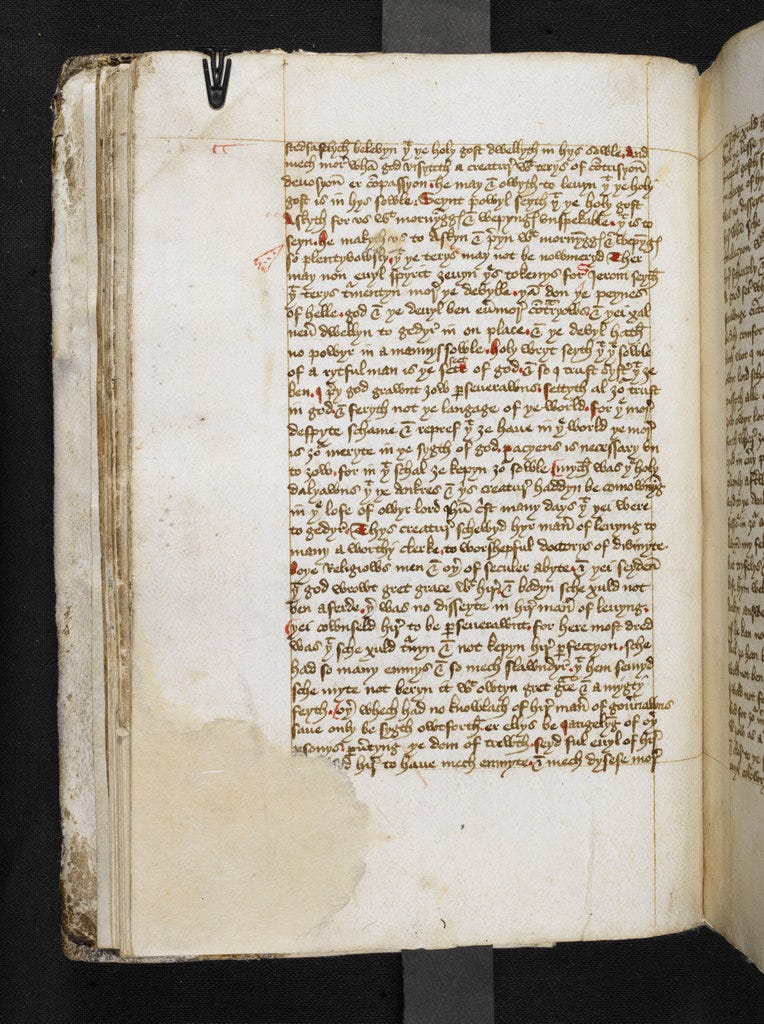 stedfastlych belevyn þᵗ þe holy gost dwellyth in hys sowle. And
mech mor whan god visyteth a creatur wᵗ terys of cōtrisyon
devosyon er cōpassyon. he may & owyth to levyn þᵗ þe holy
gost is in hys sowle. Seynt powyl seyth þᵗ þe holy gost
Askyth for us wᵗ mornyggs & wepyngs unspekable. þᵗ is to
seyn. he makyth us to Askyn & preyn wᵗ mornyggs & wepyngs
so plentyvowsly. þᵗ þe terys may not be nowmeryd. Ther
may non evyl spyrit zevyn þes tokenys for Jerom seyth
þᵗ terys turmentyn mor þe devylle. þan don þe peynes
of helle. god & þe devyl ben evermor cōtraryows. & þei xal
nevyr dwellyn to gedyr in on place. & þe devyl hath
no powyr in a mannys sowle. holy wryt seyth þᵗ þe sowle
of a rytful man is þe sete of god. & so I trust syster þᵗ ze
ben. I prey god grawnt zow perseverawns. settyth al zor trust
in god. & feryth not þe langage of þe world. for þe mor
despyte schame & repref þᵗ ze have in þe world þe mor
is zor meryte in þe sygth of god. pacyens is necessary un
to zow. for in þᵗ schal ze kepyn zor sowle. mych was þe holy
dalyawns þᵗ þe ankres & þis creatur haddyn be comownyng
in þe lofe of owyr lord jhu crist many days þᵗ þei were
to gedyr. Thys creatur schewyd hyr maner of levyng to
many a worthy clerke. to worshepful doctorys of divinyte.
boþe Religiows men & oþer of seculer abyte. & þei seyden
þᵗ god wrowt gret grace wᵗ hir. & bodyn sche xuld not
ben aferde. þer was no disseyte in hir maner of levyng.
þei cownseld hir to be perseverawnt. for here most dred
was þᵗ sche xuld turnyn & not kepyn hir perfeccyon. sche
had so many enmys & so mech slawndyr. þᵗ hem semyd
sche myte not beryn it wᵗ owtyn gret grace & a mygty
feyth. oþer whech had no knowlach of hir maner of governawns
save only be sygth owtforth. er ellys be jangelyng of oþer
personys pervertyng þe dom of trewth. seyd ful evyl of hir
hir to have mech enmyte. & mech dysese mor